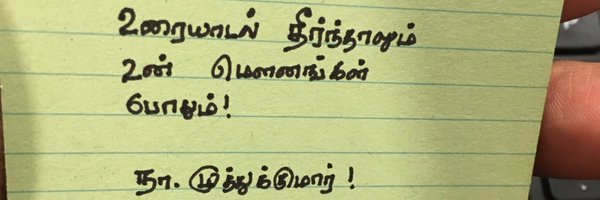 உரையாடல் தீர்ந்தாலும்
உன் மௌனங்கள்
போதும்!
நா. முத்துக்குமார்!